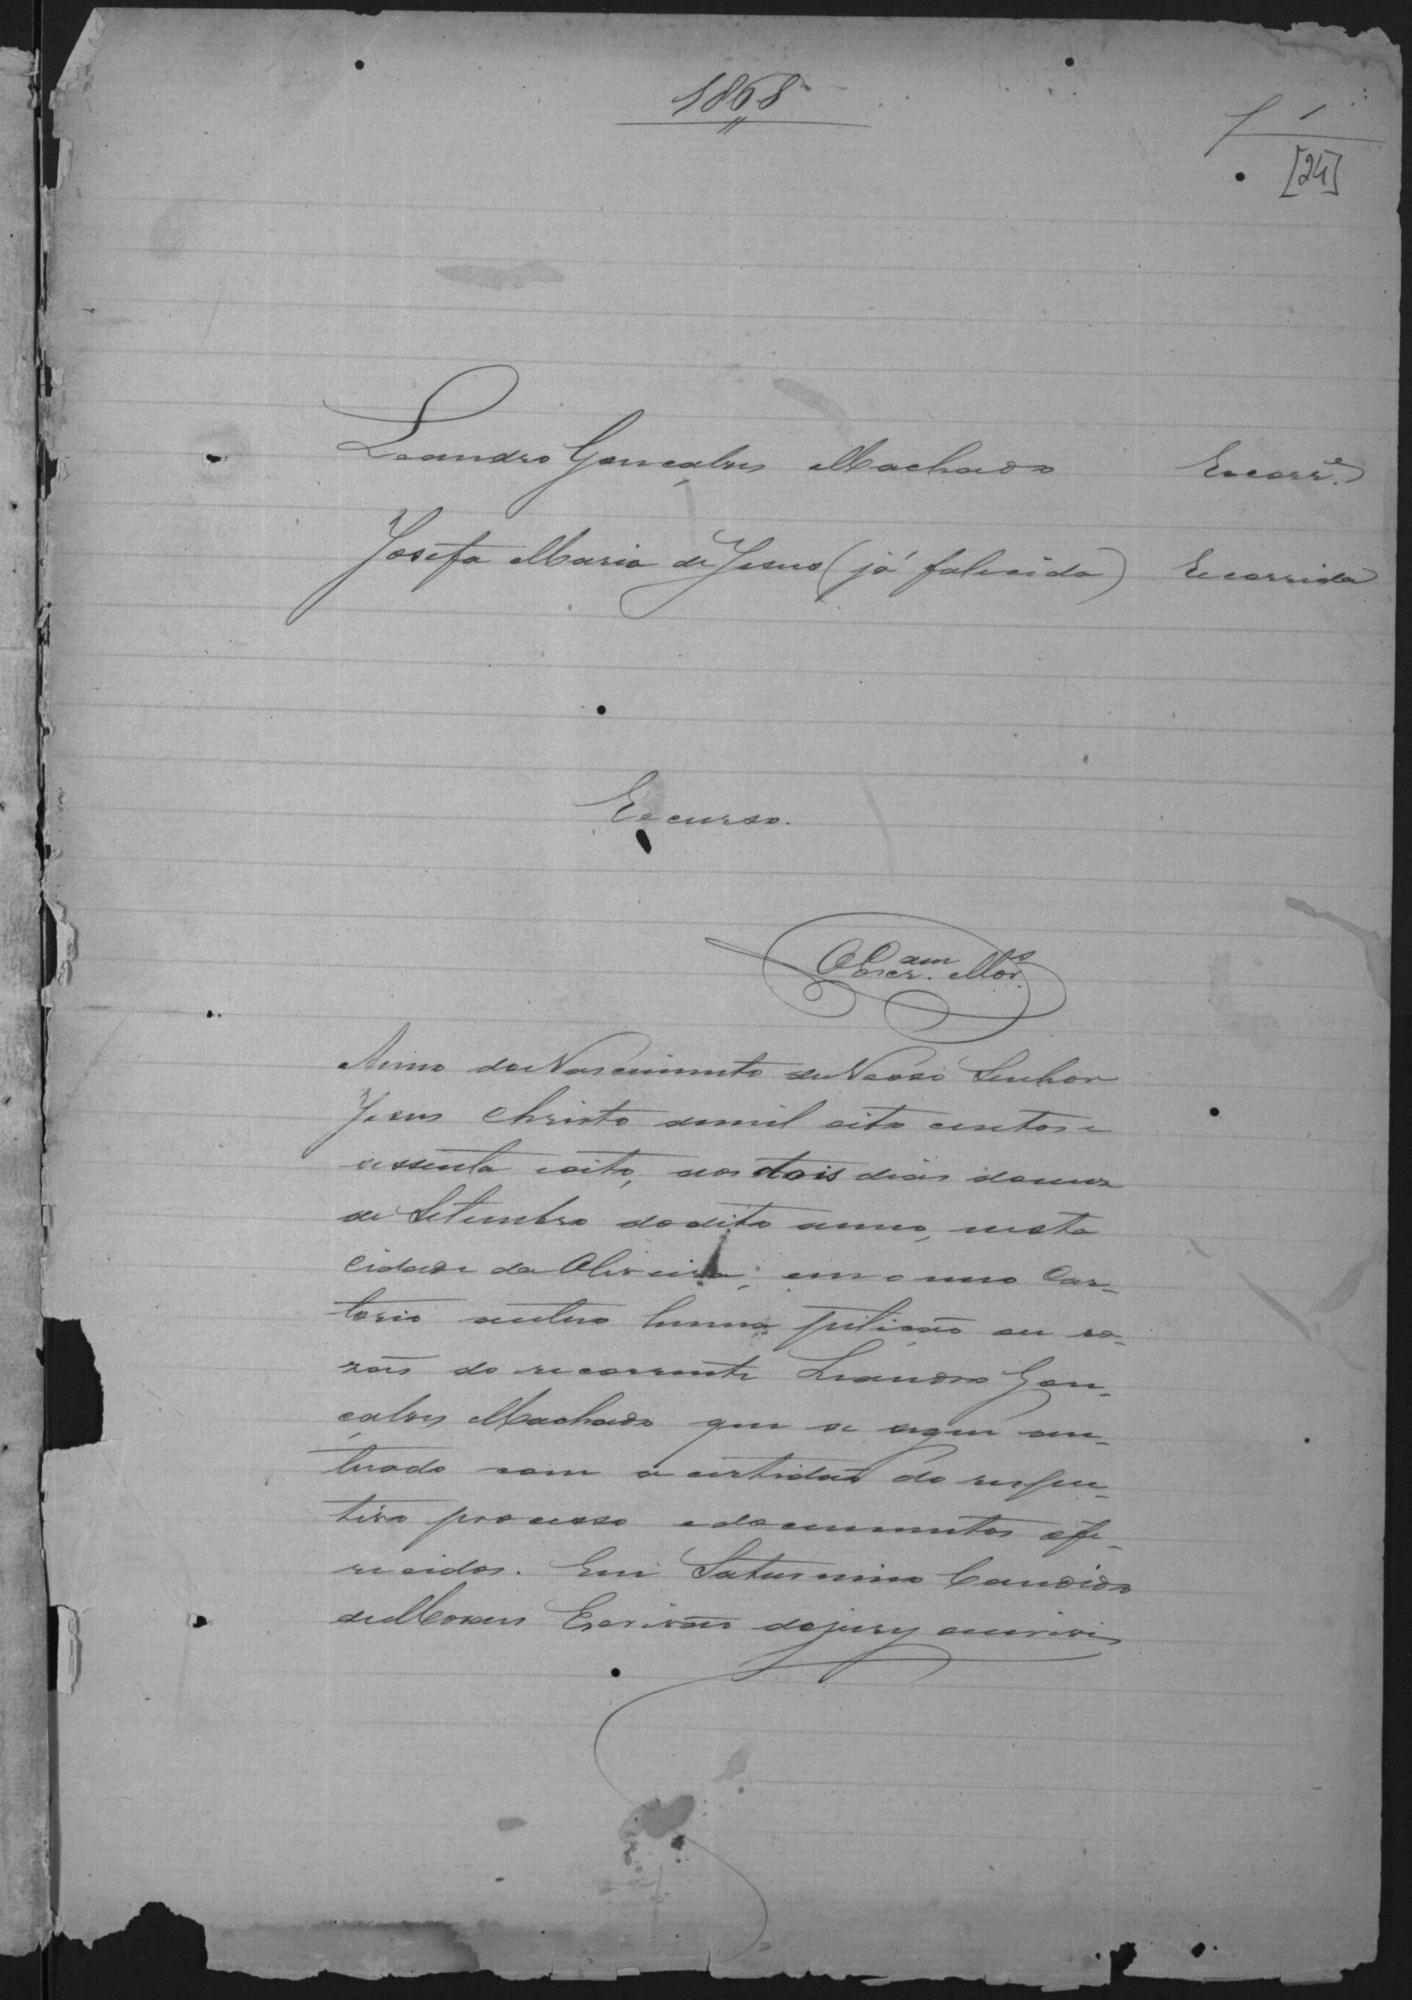 1868
f 1
[24]
Leandro Gonçalves Machado Recorr.e
Josefa Maria de Jesus (já falecida) Recorrida
Recurso.
O Escr.am Mor.s
Anno do Nascimento de Nosso Senhor
Jesus Christo de mil oito centos e
sessenta e oito, aos dois dias do mez
de Setembro do dito anno, nesta
Cidade da Oliveira, em o meu Car-
torio autuo huma petição ou ra-
zões do recorrente Leandro Gon-
çalves Machado que se segue au-
tuado com a certidão do respec-
tivo processo e documentos ofe-
recidos. Eu Saturnino Candido
de Moraes Escrivão do jury escrevi